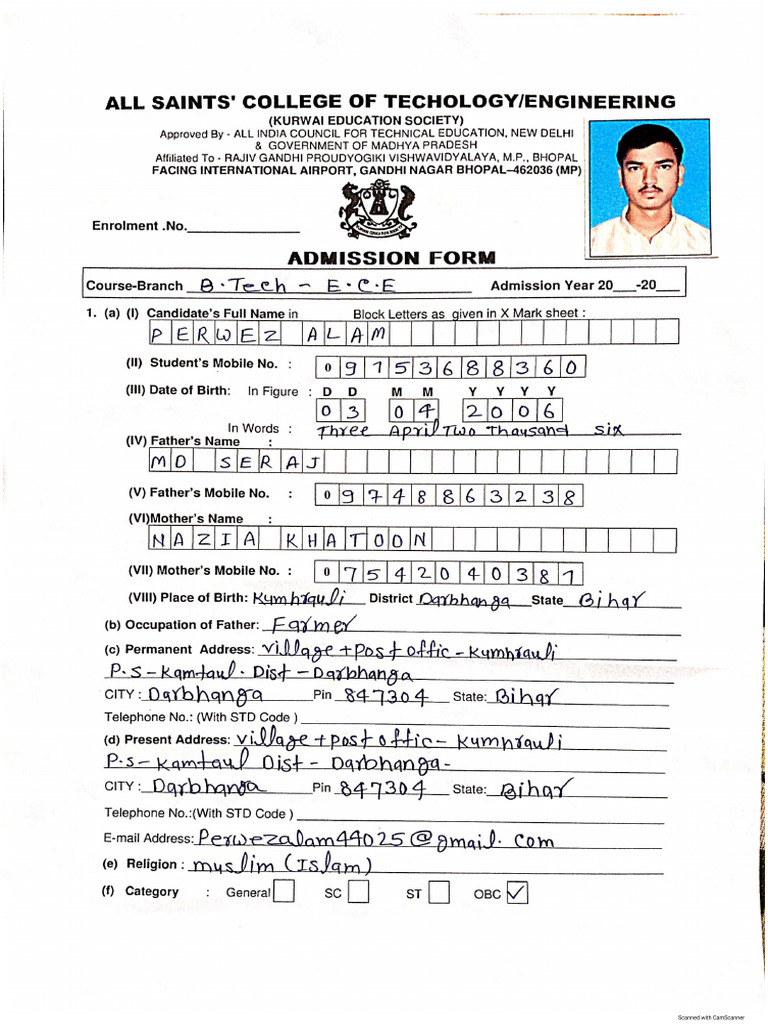 ALL SAINTS' COLLEGE OF TECHOLOGY/ENGINEERING
(KURWAI EDUCATION SOCIETY)
Approved By - ALL INDIA COUNCIL FOR TECHNICAL EDUCATION, NEW DELHI
& GOVERNMENT OF MADHYA PRADESH
Affiliated To - RAJIV GANDHI PROUDYOGIKI VISHWAVIDYALAYA, M.P., BHOPAL
FACING INTERNATIONAL AIRPORT, GANDHI NAGAR BHOPAL–462036 (MP)
Enrolment .No.
ADMISSION FORM
Course-Branch B.Tech - E.C.E Admission Year 20___-20___
1. (a) (I) Candidate's Full Name in Block Letters as given in X Mark sheet :
PERWEZ ALAM
(II) Student's Mobile No. : 09153688360
(III) Date of Birth: In Figure : D D M M Y Y Y Y
03 04 2006
In Words : Three April Two Thausand six
(IV) Father's Name :
MD SERAJ
(V) Father's Mobile No. : 09748863238
(VI)Mother's Name :
NAZIA KHATOON
(VII) Mother's Mobile No. : 07542040381
(VIII) Place of Birth: Kumhrauli District Darbhanga State Bihar
(b) Occupation of Father: Farmer
(c) Permanent Address: village + post offic - Kumhrauli
P.S - Kamtaul. Dist - Darbhanga
CITY : Darbhanga Pin 847304 State: Bihar
Telephone No.: (With STD Code )
(d) Present Address: village + post offic - Kumhrauli
P.S - Kamtaul Dist - Darbhanga -
CITY : Darbhanga Pin 847304 State: Bihar
Telephone No.:(With STD Code )
E-mail Address: Perwezalam44025@gmail.com
(e) Religion : muslim (Islam)
(f) Category : General SC ST OBC ✓
Scanned with CamScanner